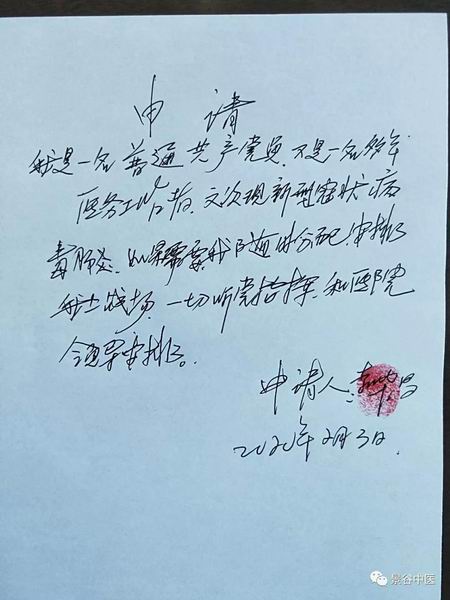 申 请
我是一名普通共产党员,又是一名多年
医务工作者,这次现新型冠状病
毒肺炎,如果需要我随时分配,安排
我上战场,一切听党指挥,和医院
领导安排。
申请人:
2020年2月3日.
景谷中医